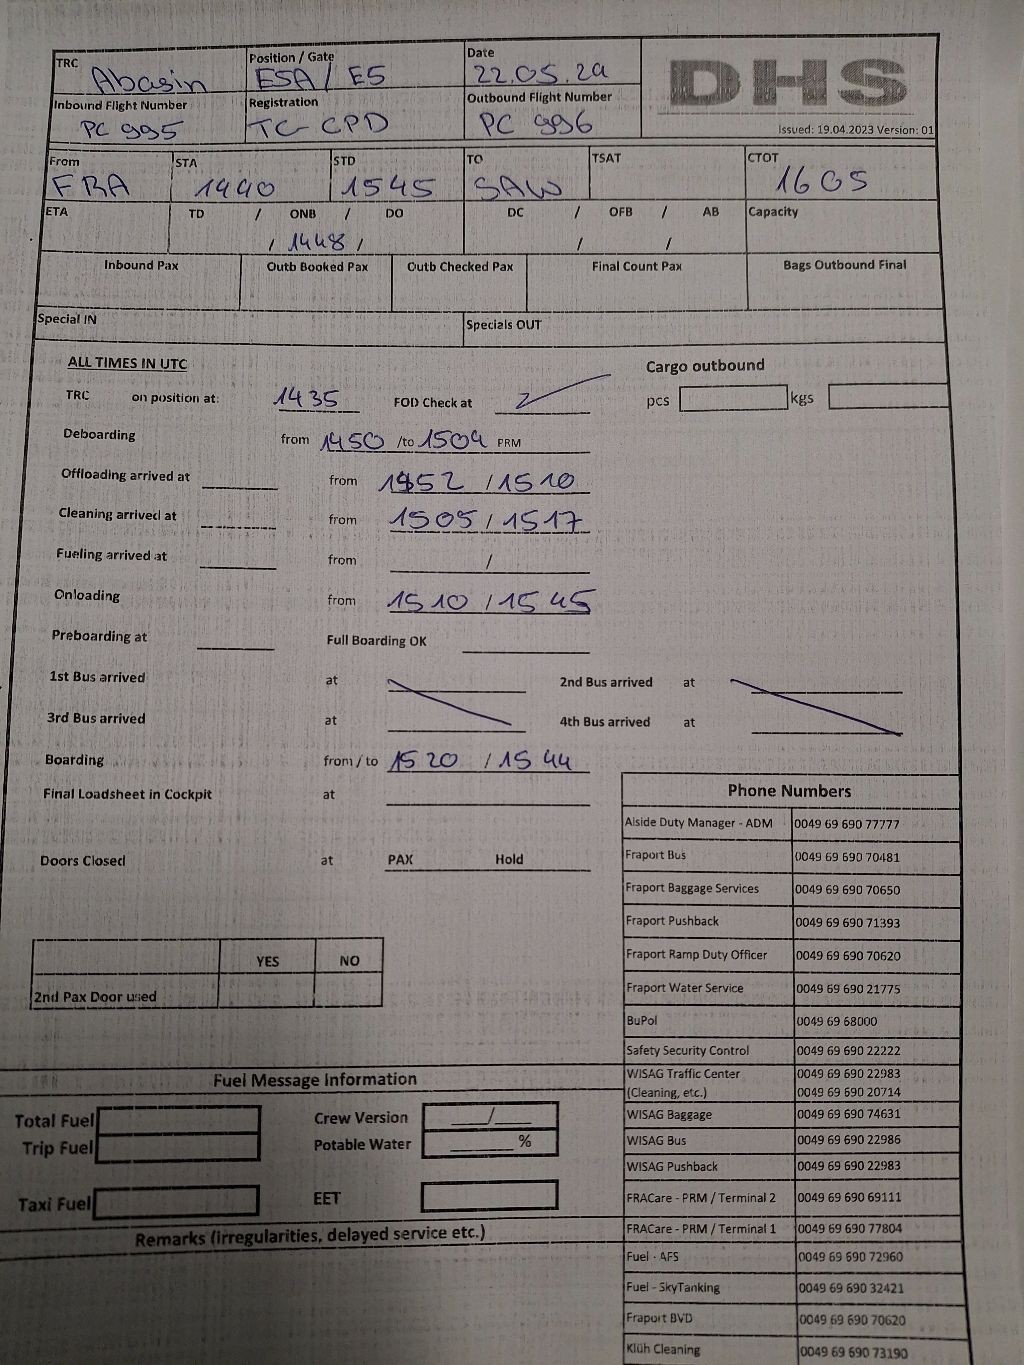 TRC Abasin Position / Gate E5A / E5 Date 22.05.24 DHS
Inbound Flight Number PC 995 Registration TC-CPD Outbound Flight Number PC 996
Issued: 19.04.2023 Version: 01
From FRA STA 1440 STD 1545 TO SAW TSAT CTOT 1605
ETA TD / ONB / DO DC / OFB / AB Capacity
/ 1448 / / /
Inbound Pax Outb Booked Pax Outb Checked Pax Final Count Pax Bags Outbound Final
Special IN Specials OUT
ALL TIMES IN UTC Cargo outbound
TRC on position at: 1435 FOD Check at pcs kgs
Deboarding from 1450 /to 1504 PRM
Offloading arrived at from 1452 / 1510
Cleaning arrived at from 1505 / 1517
Fueling arrived at from /
Onloading from 1510 / 1545
Preboarding at Full Boarding OK
1st Bus arrived at 2nd Bus arrived at
3rd Bus arrived at 4th Bus arrived at
Boarding from / to 1520 / 1544
Final Loadsheet in Cockpit at
Doors Closed at PAX Hold
YES NO
2nd Pax Door used
Phone Numbers
Alside Duty Manager - ADM 0049 69 690 77777
Fraport Bus 0049 69 690 70481
Fraport Baggage Services 0049 69 690 70650
Fraport Pushback 0049 69 690 71393
Fraport Ramp Duty Officer 0049 69 690 70620
Fraport Water Service 0049 69 690 21775
BuPol 0049 69 68000
Safety Security Control 0049 69 690 22222
WISAG Traffic Center 0049 69 690 22983
(Cleaning, etc.) 0049 69 690 20714
WISAG Baggage 0049 69 690 74631
WISAG Bus 0049 69 690 22986
WISAG Pushback 0049 69 690 22983
FRACare - PRM / Terminal 2 0049 69 690 69111
FRACare - PRM / Terminal 1 0049 69 690 77804
Fuel - AFS 0049 69 690 72960
Fuel - SkyTanking 0049 69 690 32421
Fraport BVD 0049 69 690 70620
Klüh Cleaning 0049 69 690 73190
Fuel Message Information
Total Fuel Crew Version /
Trip Fuel Potable Water %
Taxi Fuel EET
Remarks (irregularities, delayed service etc.)